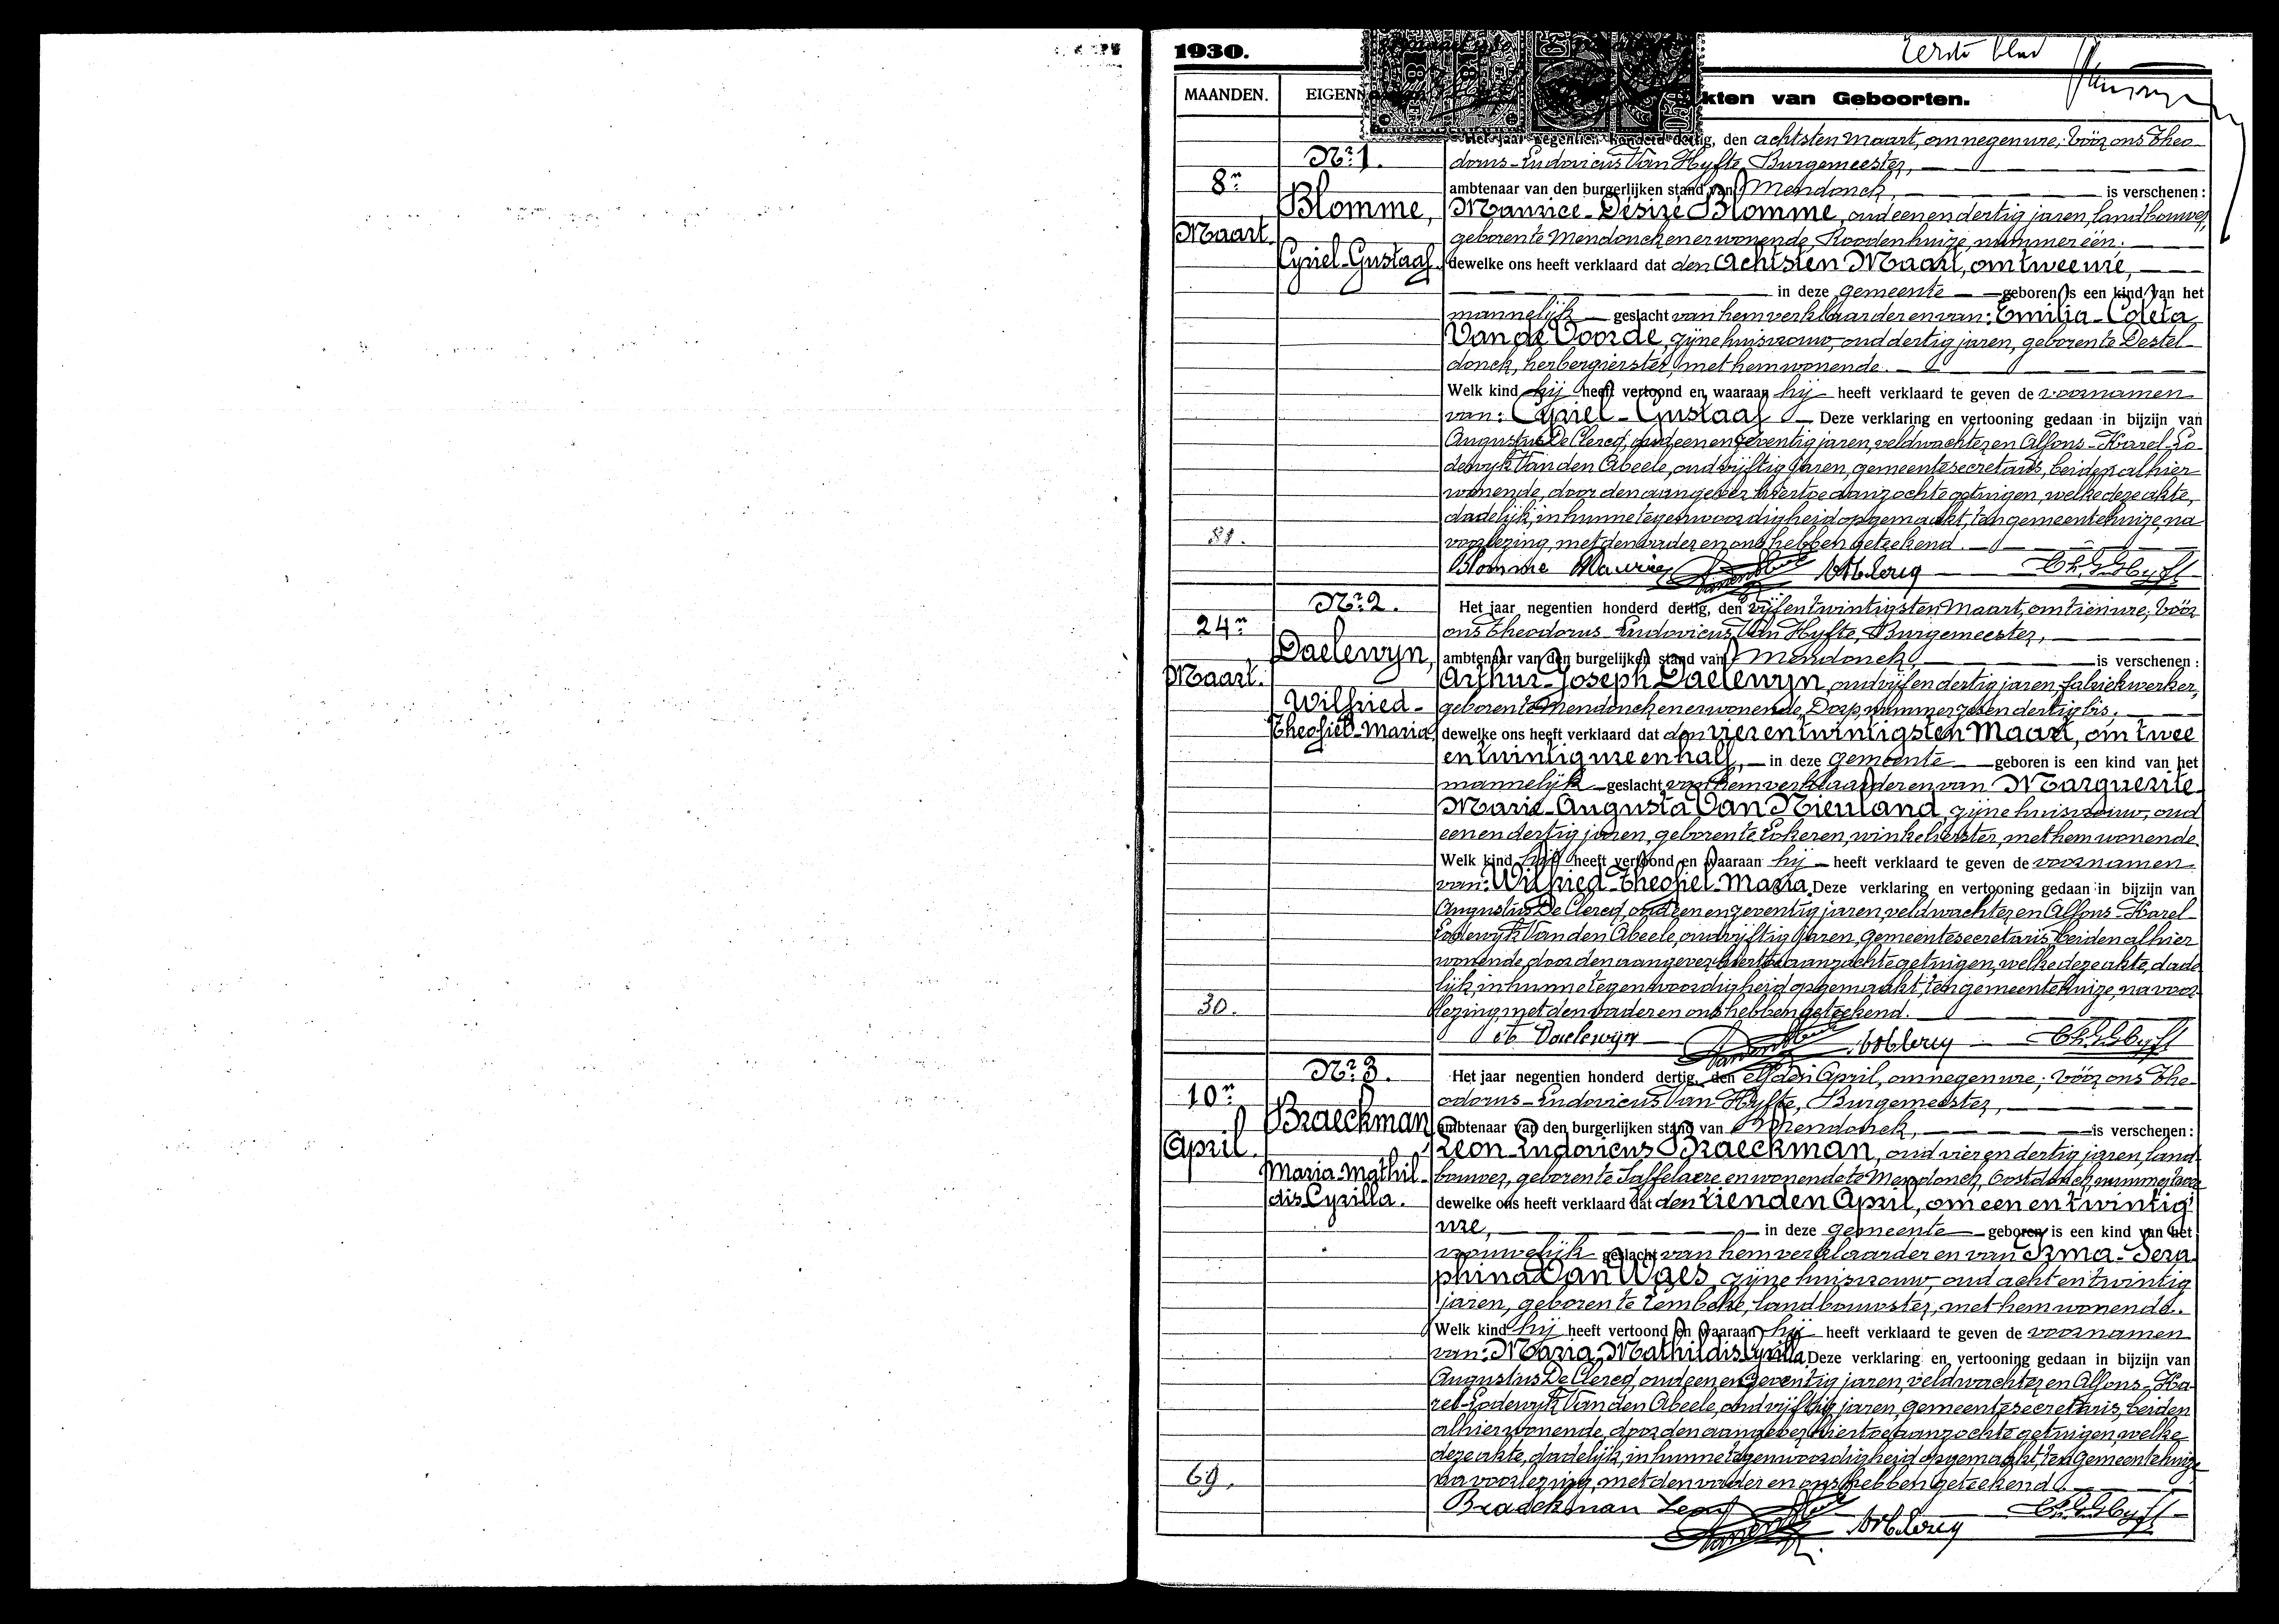 1930.
Eerste blad
MAANDEN.
EIGENN
kten van Geboorten.
Nr. 1.
8n
Maart.
Blomme,
Cyriel-Gustaaf.
Het jaar negentien honderd dertig, den achtsten Maart, om negen ure; vóór ons Theo-
dorus-Ludovicus Van Hyfte, Burgemeester,
ambtenaar van den burgerlijken stand van Mendonck, is verschenen:
Maurice-Désiré Blomme, oud een en dertig jaren, landbouwer,
geboren te Mendonck en er wonende, Roodenhuize, nummer één.
dewelke ons heeft verklaard dat den achtsten Maart, om twee ure,
in deze gemeente geboren is een kind van het
mannelijk geslacht van hem verklaarder en van: Emilia-Coleta
Van de Voorde, zijne huisvrouw, oud dertig jaren, geboren te Destel-
donck, herbergierster, met hem wonende.
Welk kind hij heeft vertoond en waaraan hij heeft verklaard te geven de voornamen
van: Cyriel-Gustaaf Deze verklaring en vertooning gedaan in bijzijn van
Augustus De Clercq, oud een en zeventig jaren, veldwachter en Alfons-Karel-Lo-
dewijk Van den Abeele, oud vijftig jaren, gemeentesecretaris, beiden alhier
wonende, door den aangever hiertoe aanzochte getuigen, welke deze akte,
dadelijk, in hunne tegenwoordigheid opgemaakt, ten gemeentehuize, na
voorlezing, met den vader en ons hebben geteekend.
81.
Blomme Maurice
Nr. 2.
24n
Maart.
Daelewyn,
Wilfried-
Theofiel-Maria.
Het jaar negentien honderd dertig, den vijf en twintigsten Maart, om tien ure; vóór
ons Theodorus-Ludovicus Van Hyfte, Burgemeester,
ambtenaar van den burgelijken stand van Mendonck, is verschenen:
Arthur-Joseph Daelewyn, oud vijf en dertig jaren, fabriekwerker,
geboren te Mendonck en er wonende, Dorp, nummer zes en dertig bis,
dewelke ons heeft verklaard dat den vier en twintigsten Maart, om twee
en twintig ure en half, in deze gemeente geboren is een kind van het
mannelijk geslacht van hem verklaarder en van Marguerite-
Marie-Augusta Van Nieuland, zijne huisvrouw, oud
een en dertig jaren, geboren te Lokeren, winkelierster, met hem wonende.
Welk kind hij heeft vertoond en waaraan hij heeft verklaard te geven de voornamen
van: Wilfried-Theofiel-Maria. Deze verklaring en vertooning gedaan in bijzijn van
Augustus De Clercq, oud een en zeventig jaren, veldwachter en Alfons-Karel-
Lodewijk Van den Abeele, oud vijftig jaren, gemeentesecretaris, beiden alhier
wonende, door den aangever hiertoe aanzochte getuigen, welke deze akte, dade-
lijk, in hunne tegenwoordigheid opgemaakt, ten gemeentehuize, na voor-
lezing, met den vader en ons hebben geteekend.
30.
Daelewyn
Nr. 3.
10n
April.
Braeckman
Maria-Mathil-
dis-Cyrilla.
Het jaar negentien honderd dertig, den elfden April, om negen ure; vóór ons The-
odorus-Ludovicus Van Hyfte, Burgemeester,
ambtenaar van den burgerlijken stand van Mendonck, is verschenen:
Leon-Ludovicus Braeckman, oud vier en dertig jaren, land-
bouwer, geboren te Saffelaere en wonende te Mendonck, Oostdonck, nummer twee
dewelke ons heeft verklaard dat den tienden April, om een en twintig
ure, in deze gemeente geboren is een kind van het
vrouwelijk geslacht van hem verklaarder en van Irma-Sera-
phina Van Waes, zijne huisvrouw, oud acht en twintig
jaren, geboren te Lembeke, landbouwster, met hem wonende.
Welk kind hij heeft vertoond en waaraan hij heeft verklaard te geven de voornamen
van: Maria-Mathildis-Cyrilla. Deze verklaring en vertooning gedaan in bijzijn van
Augustus De Clercq, oud een en zeventig jaren, veldwachter en Alfons-Ka-
rel-Lodewijk Van den Abeele, oud vijftig jaren, gemeentesecretaris, beiden
alhier wonende, door den aangever hiertoe aanzochte getuigen, welke
deze akte, dadelijk, in hunne tegenwoordigheid opgemaakt, ten gemeentehuize
na voorlezing, met den vader en ons hebben geteekend.
69.
Braeckman Leon